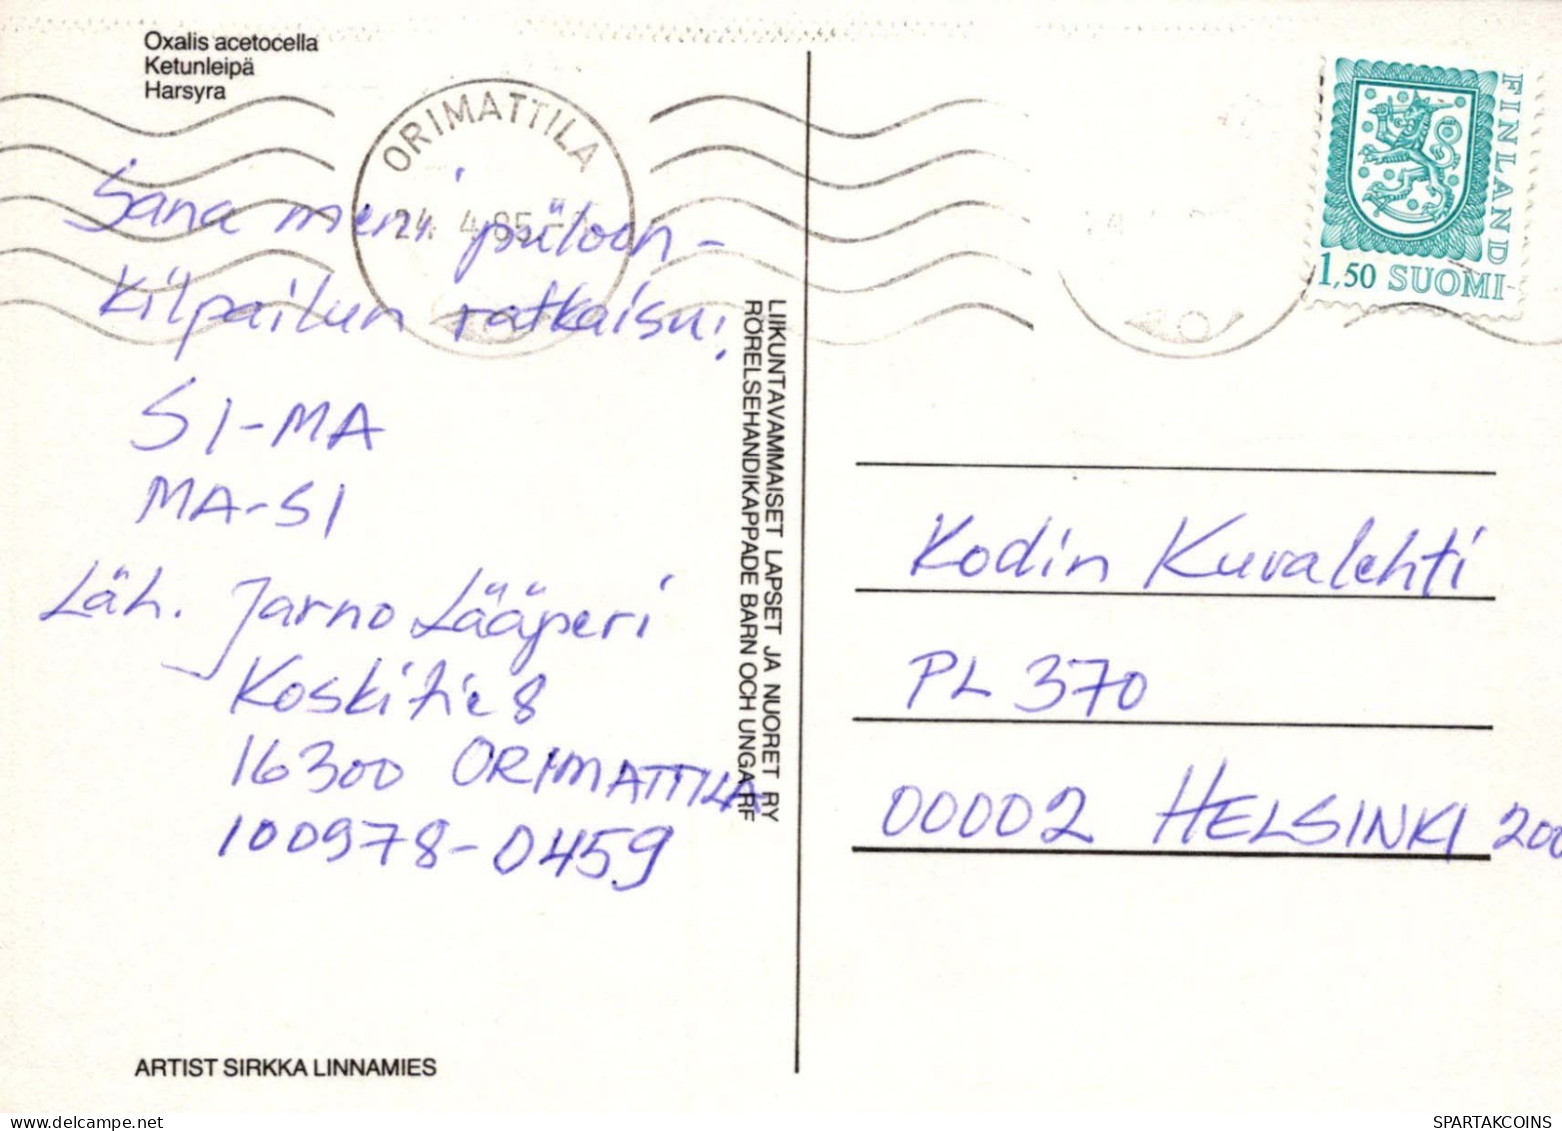 Oxalis acetocella
Ketunleipä
Harsyra
ORIMATTILA
24. 4.85
Sana meni piiloon-
kilpailun ratkaisu:
SI-MA
MA-SI
Läh. Jarno Lääperi
Koskitie 8
16300 ORIMATTILA
100978-0459
ARTIST SIRKKA LINNAMIES
LIIKUNTAVAMMAISET LAPSET JA NUORET RY
RÖRELSEHANDIKAPPADE BARN OCH UNGA RF
FINLAND
1,50 SUOMI
Kodin Kuvalehti
PL 370
00002 HELSINKI 200
SPARTAKCOINS